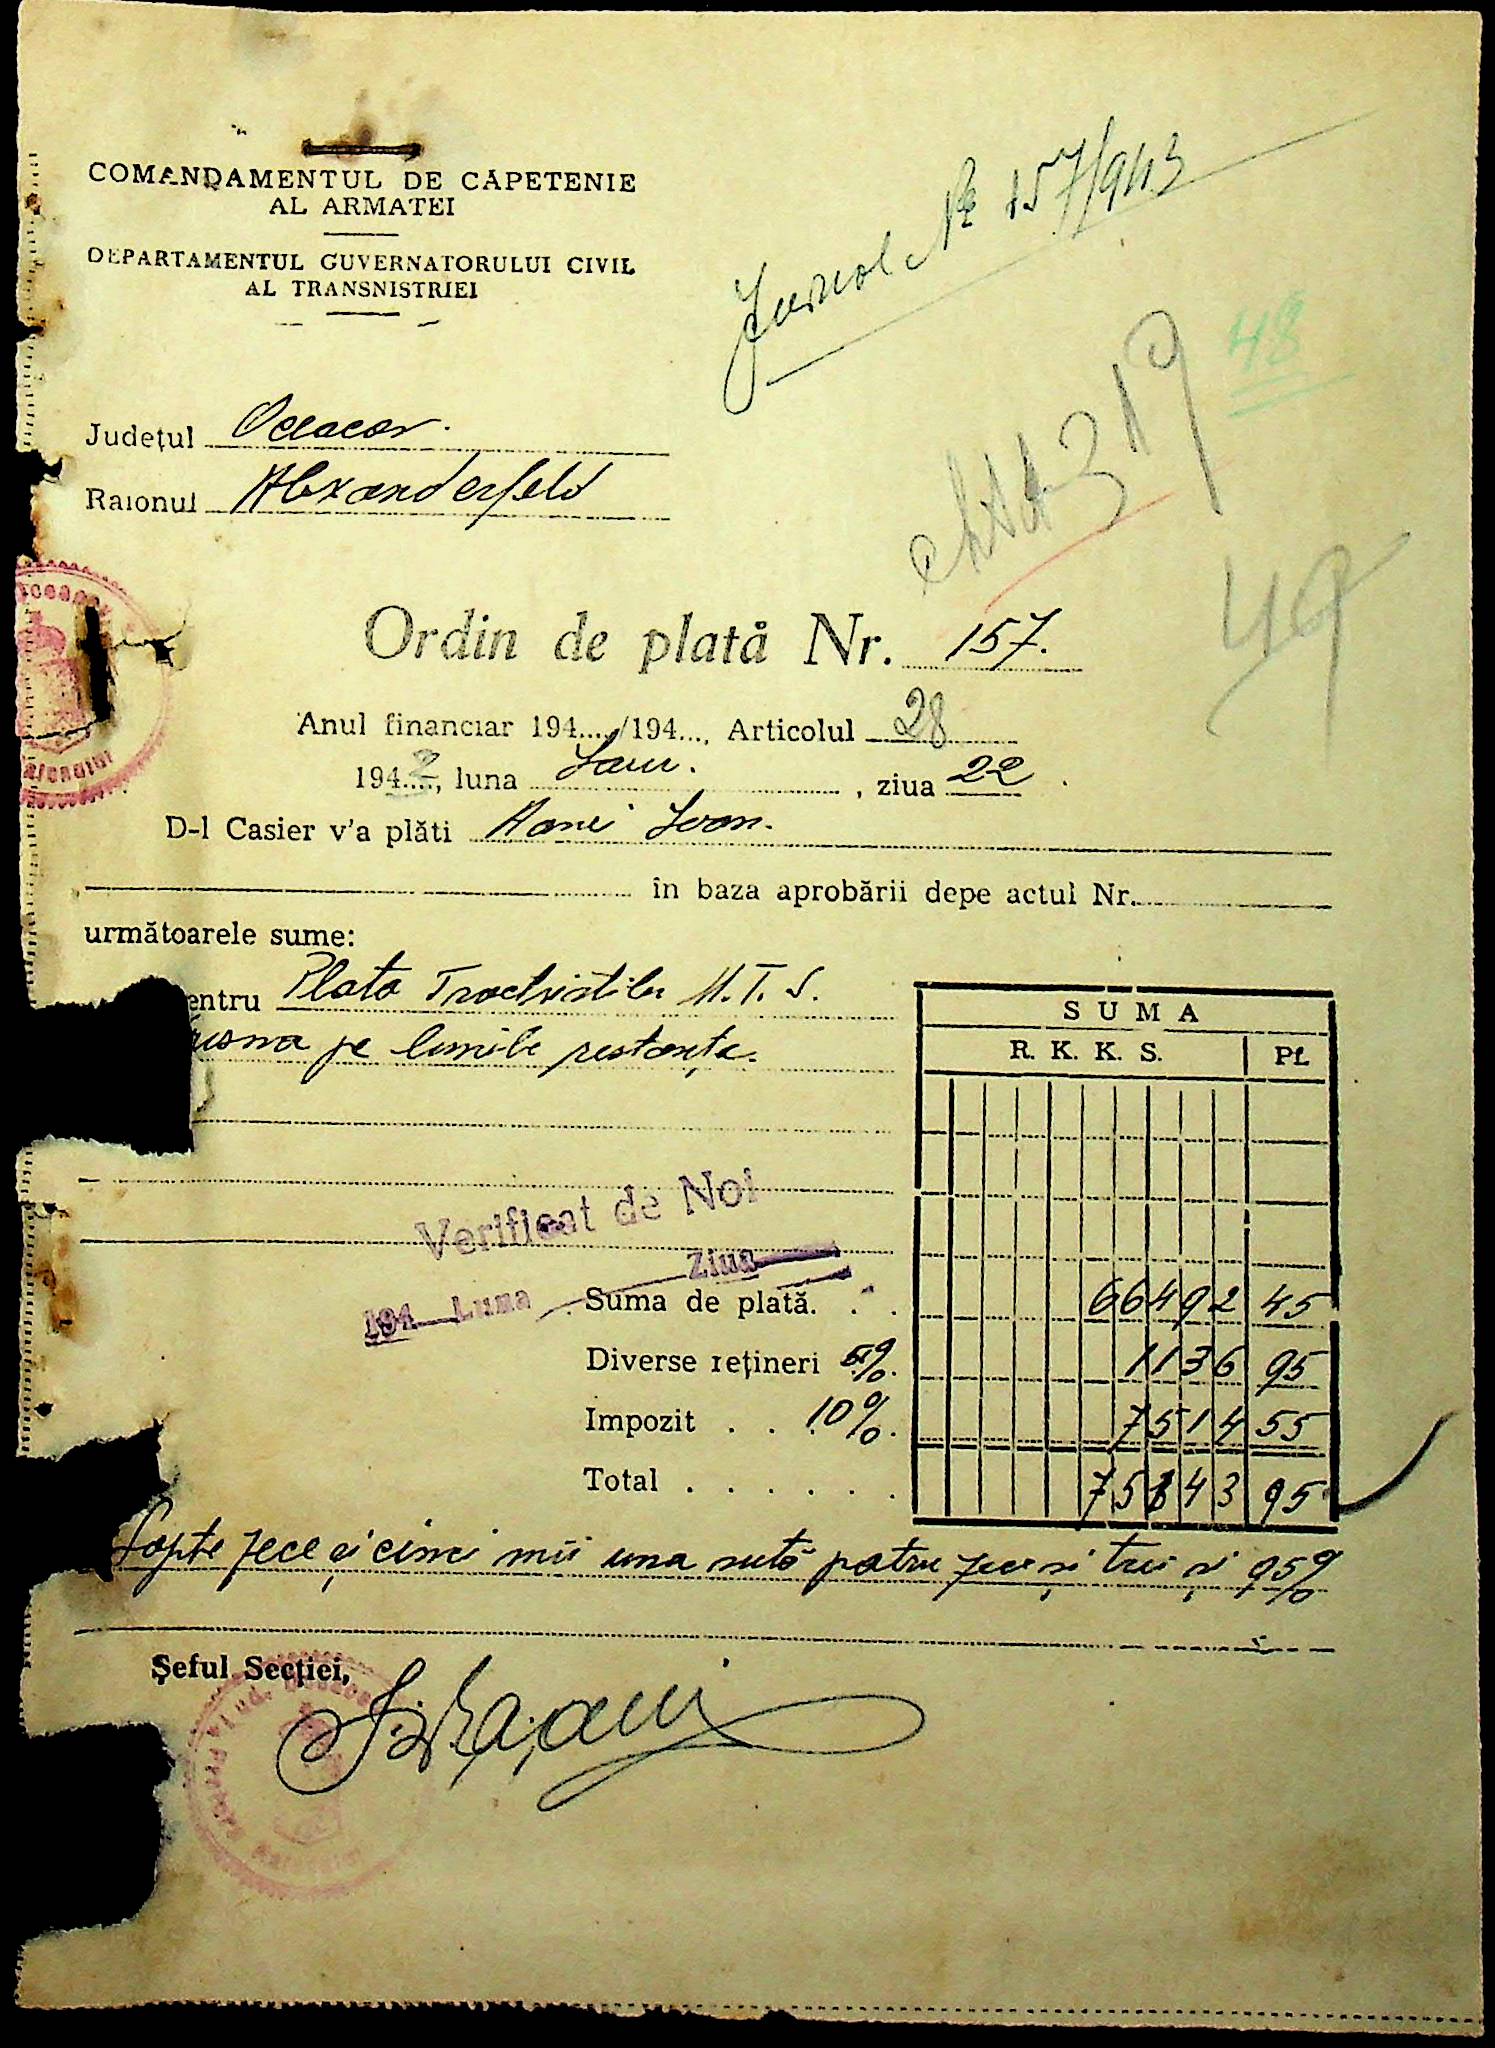 COMANDAMENTUL DE CAPETENIE
AL ARMATEI
DEPARTAMENTUL GUVERNATORULUI CIVIL
AL TRANSNISTRIEI
Jurnal № 157/943
48
319
49
Județul Oceacov.
Raionul Alexanderfeld
Ordin de plată Nr. 157.
Anul financiar 194..../194..., Articolul 28
194..., luna Ianu. , ziua 22
D-l Casier v'a plăti Ivan.
în baza aprobării depe actul Nr.
următoarele sume:
entru Plata Tractoristilor M.T.S.
pe lunile restanța.
SUMA
R. K. K. S. Pf.
Verificat de Noi
194 Luna Ziua
Suma de plată. . . 66492 45
Diverse rețineri 1136 95
Impozit . . 10%. 7514 55
Total . . . . . . 75143 95
Șapte zece și cinci mii una sută patru zeci și trei și 95%
Șeful Secției,